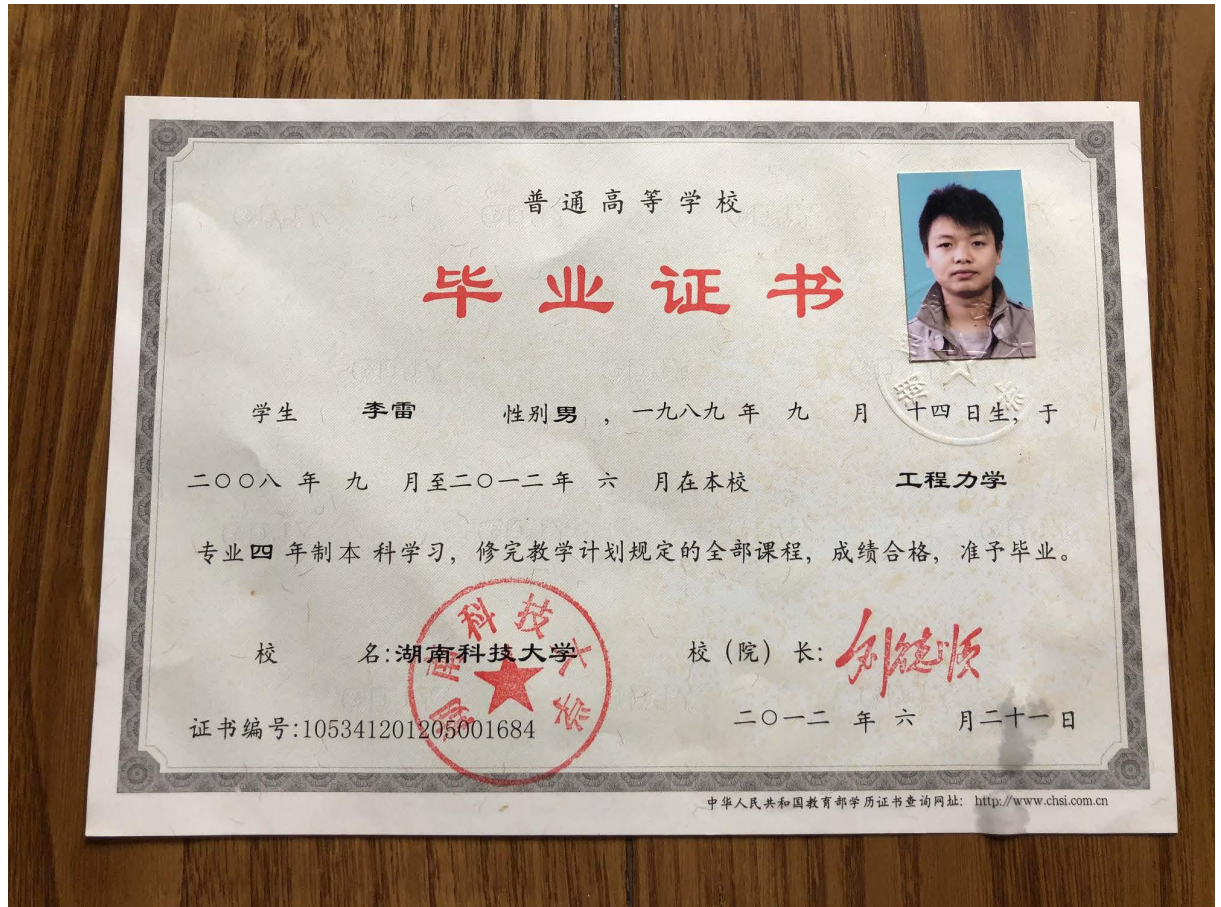 普通高等学校
毕业证书
学生 李雷 性别男,一九八九年九月十四日生,于
二〇〇八年九月至二〇一二年六月在本校 工程力学
专业四年制本科学习,修完教学计划规定的全部课程,成绩合格,准予毕业。
校 名:湖南科技大学 校(院)长:刘德顺
湖南科技大学
证书编号:105341201205001684 二〇一二年六月二十一日
中华人民共和国教育部学历证书查询网址: http://www.chsi.com.cn